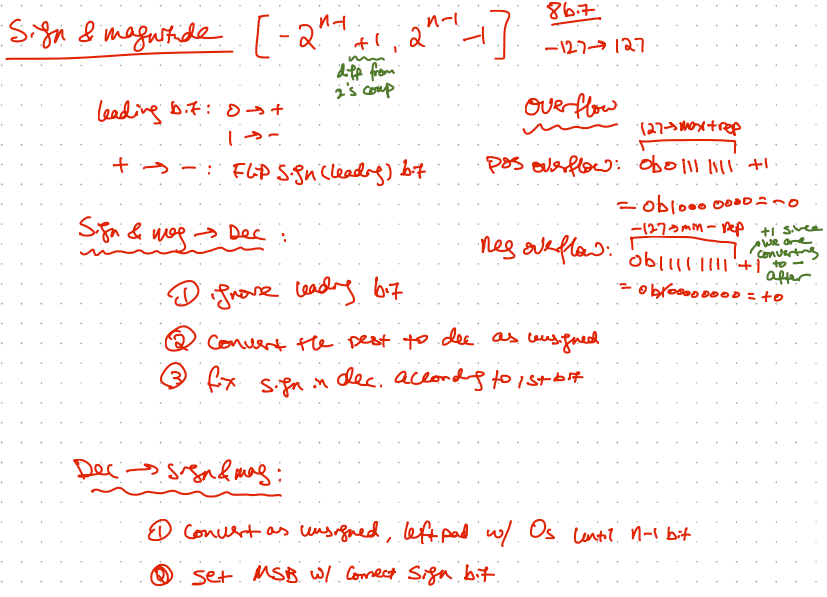 Sign & magnitude [-2^{n-1} +1, 2^{n-1} -1]
diff from
2's comp
8bit
-127 → 127
leading bit: 0 → +
1 → -
+ → -: Flip sign (leading) bit
Overflow
127 → max + rep
pos overflow: 0b0111 1111 +1
= 0b1000 0000 = -0
-127 → min - rep
neg overflow: 0b1111 1111 +1
+1 since
we are
converting
to -
after
= 0b100000000 = +0
Sign & mag → Dec:
① ignore leading bit
② convert the rest to dec as unsigned
③ fix sign in dec. according to 1st bit
Dec → sign & mag:
① Convert as unsigned, left pad w/ 0s until n-1 bit
② set MSB w/ correct sign bit